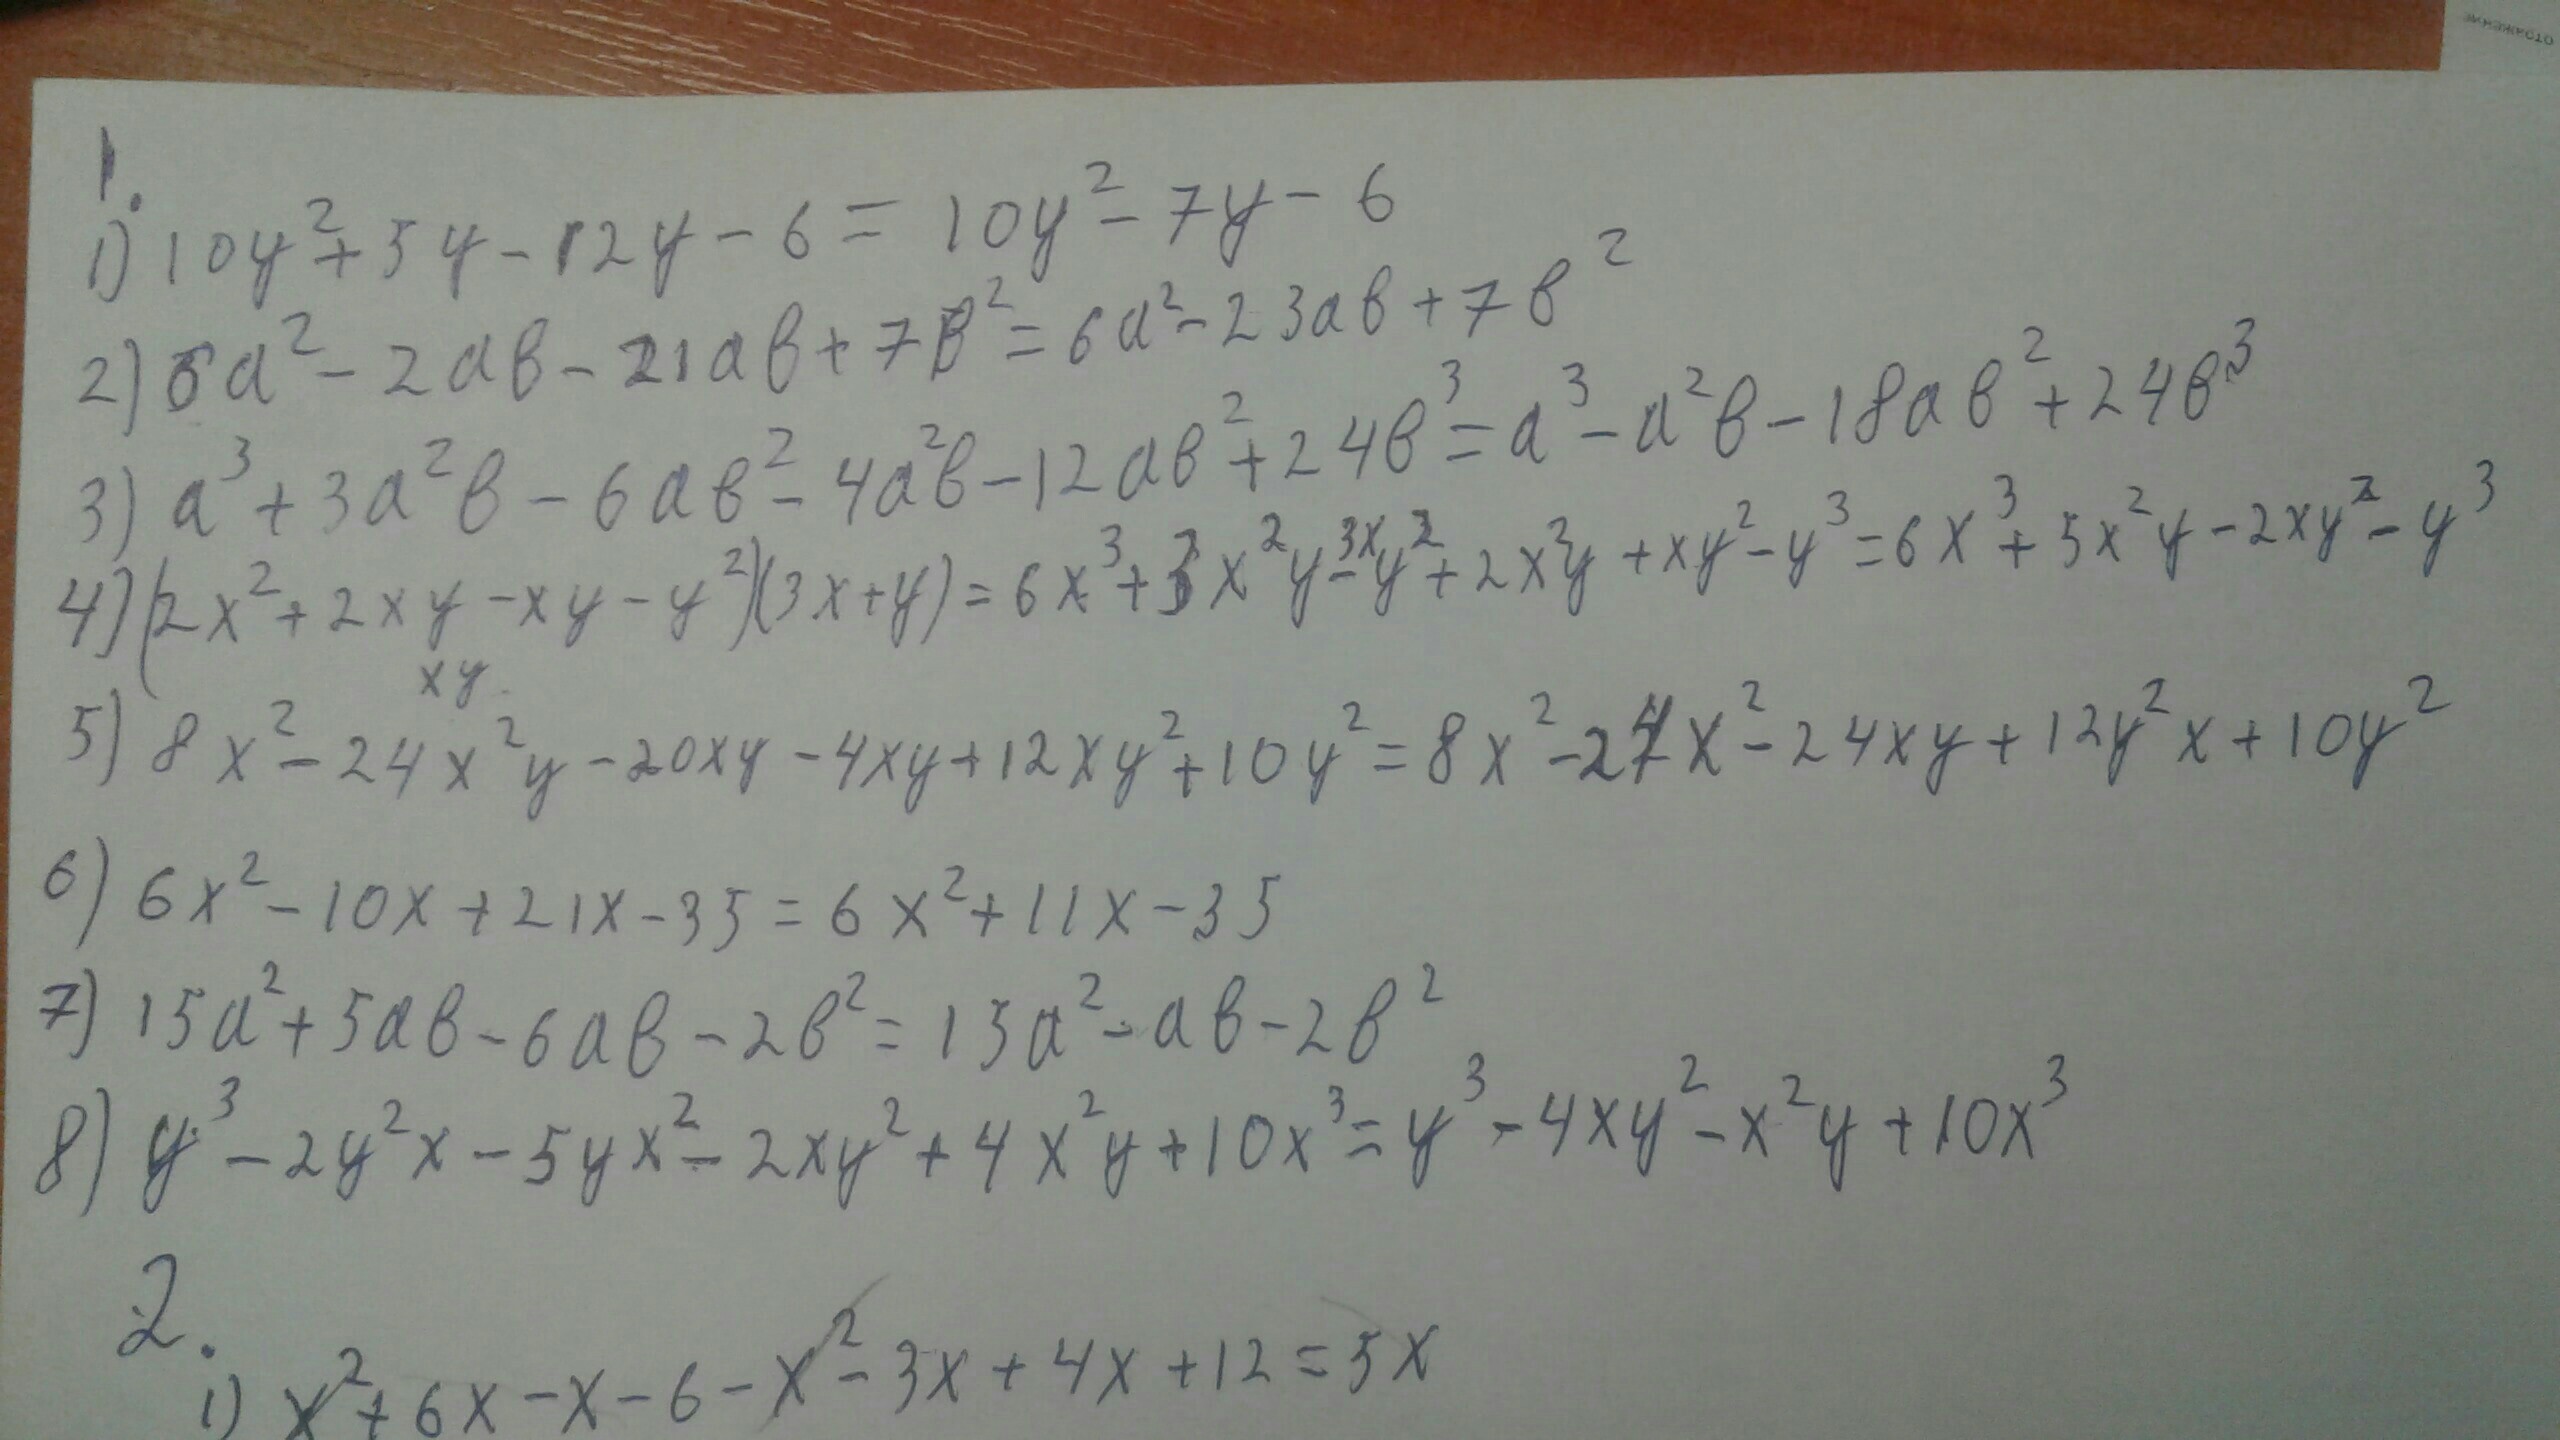 отожжение
1.
1) 10y² + 5y - 12y - 6 = 10y² - 7y - 6
2) 6a² - 2ab - 21ab + 7b² = 6a² - 23ab + 7b²
3) a³ + 3a²b - 6ab² - 4a²b - 12ab² + 24b³ = a³ - a²b - 18ab² + 24b³
4) (2x² + 2xy - xy - y²)(3x + y) = 6x³ + 3x²y - 3xy² + 2x²y + xy² - y³ = 6x³ + 5x²y - 2xy² - y³
xy
5) 8x² - 24x²y - 20xy - 4xy + 12xy² + 10y² = 8x² - 24x² - 24xy + 12y²x + 10y²
6) 6x² - 10x + 21x - 35 = 6x² + 11x - 35
7) 15a² + 5ab - 6ab - 2b² = 15a² - ab - 2b²
8) y³ - 2y²x - 5yx² - 2xy² + 4x²y + 10x³ = y³ - 4xy² - x²y + 10x³
2.
1) x² + 6x - x - 6 - x² - 3x + 4x + 12 = 5x